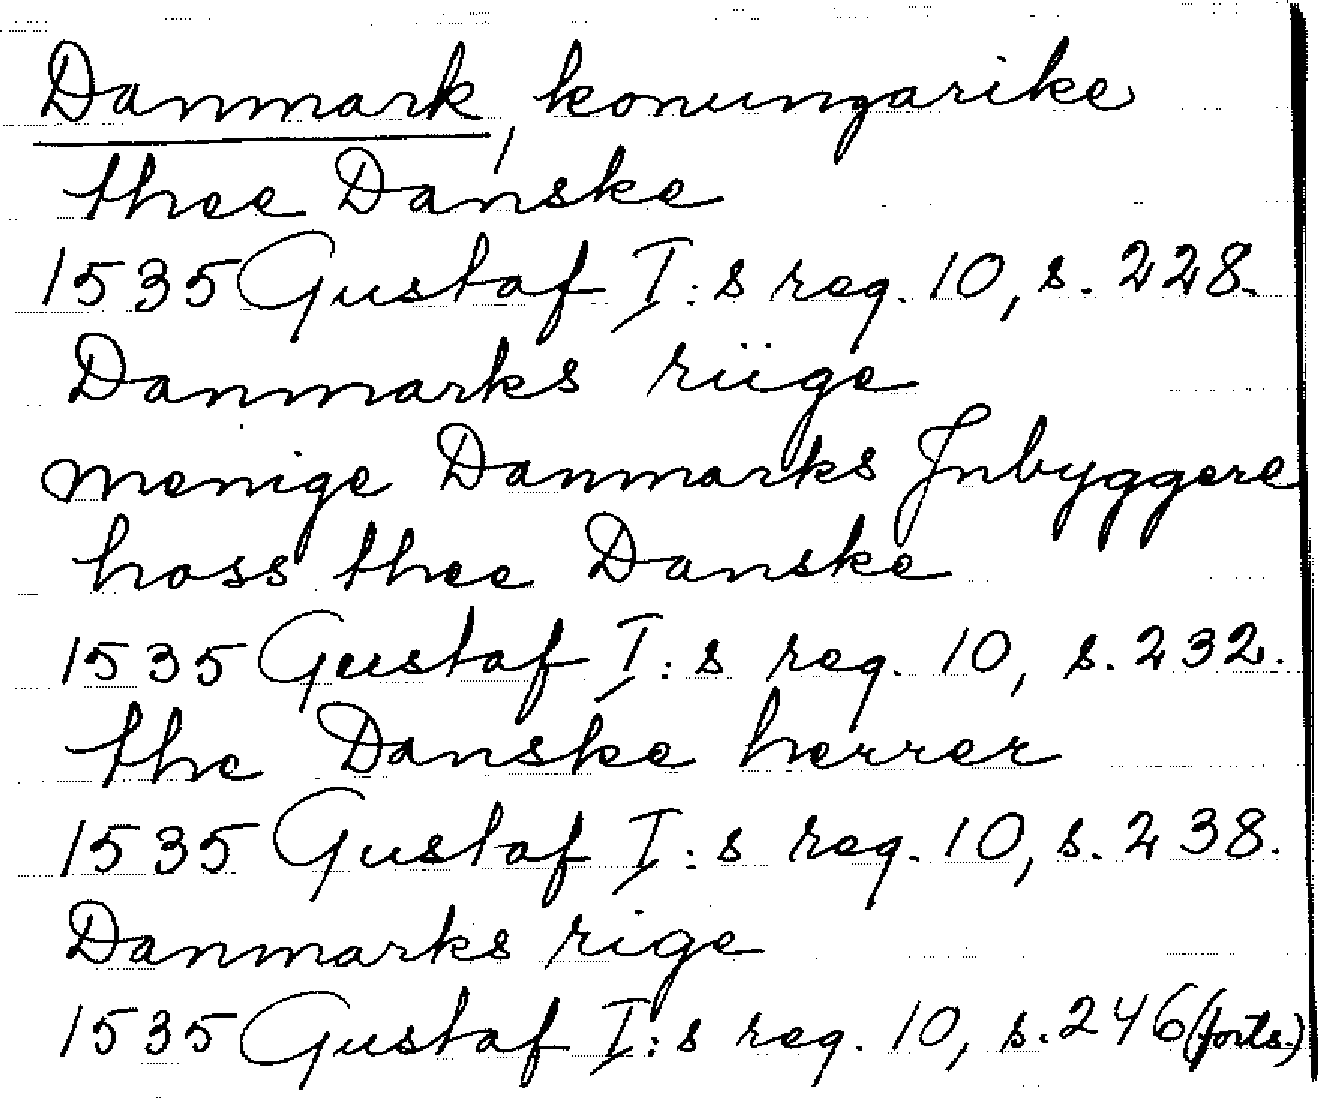 Danmark, konungarike
thee Danske
1535 Gustaf I:s reg. 10, s. 228.
Danmarks riige
menige Danmarks Jnbyggere
hoss thee Danske
1535 Gustaf I:s reg. 10, s. 232.
the Danske herrer
1535 Gustaf I:s reg. 10, s. 238.
Danmarks rige
1535 Gustaf I:s reg. 10, s. 246 (forts.)